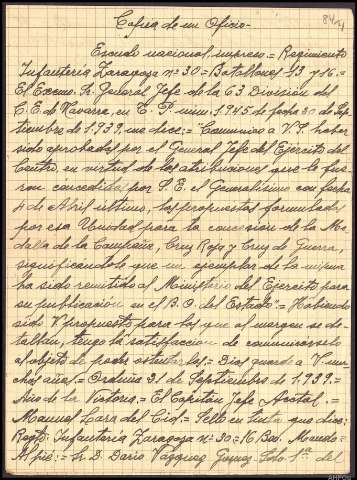 84/24
Copia de un Oficio-
Escudo nacional impreso.= Regimiento
Infantería Zaragoza nº 30= Batallones 13 y 16.=
El Excmo. Sr. General Jefe de la 63 Division del
C.E. de Navarra, en T.P. núm. 1.945 de fecha 30 de Sep-
tiembre de 1.939, me dice:= "Comunico a V.S. haber
sido aprobadas por el General Jefe del Ejercito del
Centro, en virtud de las atribuciones que le fue-
ron concedidas por S.E. el Generalísimo con fecha
4 de Abril último, las propuestas formuladas
por esa Unidad para la concesion de la Me-
dalla de la Campaña, Cruz Roja y Cruz de Guerra,
significandole que un ejemplar de la misma
ha sido remitido al Ministerio del Ejercito para
su publicacion en el B.O. del Estado".= Habiendo
sido V propuesto para las que al margen se de-
tallan, tengo la satisfaccion de comunicarselo
al objeto de poder ostentarlas.= Dios guarde a V mu-
chos años.= Orduña 31 de Septiembre de 1.939.=
Año de la Victoria.= El Capitán Jefe Acctal.=
Manuel Lara del Cid.= Sello en tinta que dice:
Regto: Infanteria Zaragoza nº 30=16 Bon. Mando=
Al pie:= Sr. D. Dario Vazquez Sto. 1ª del
AHPOu